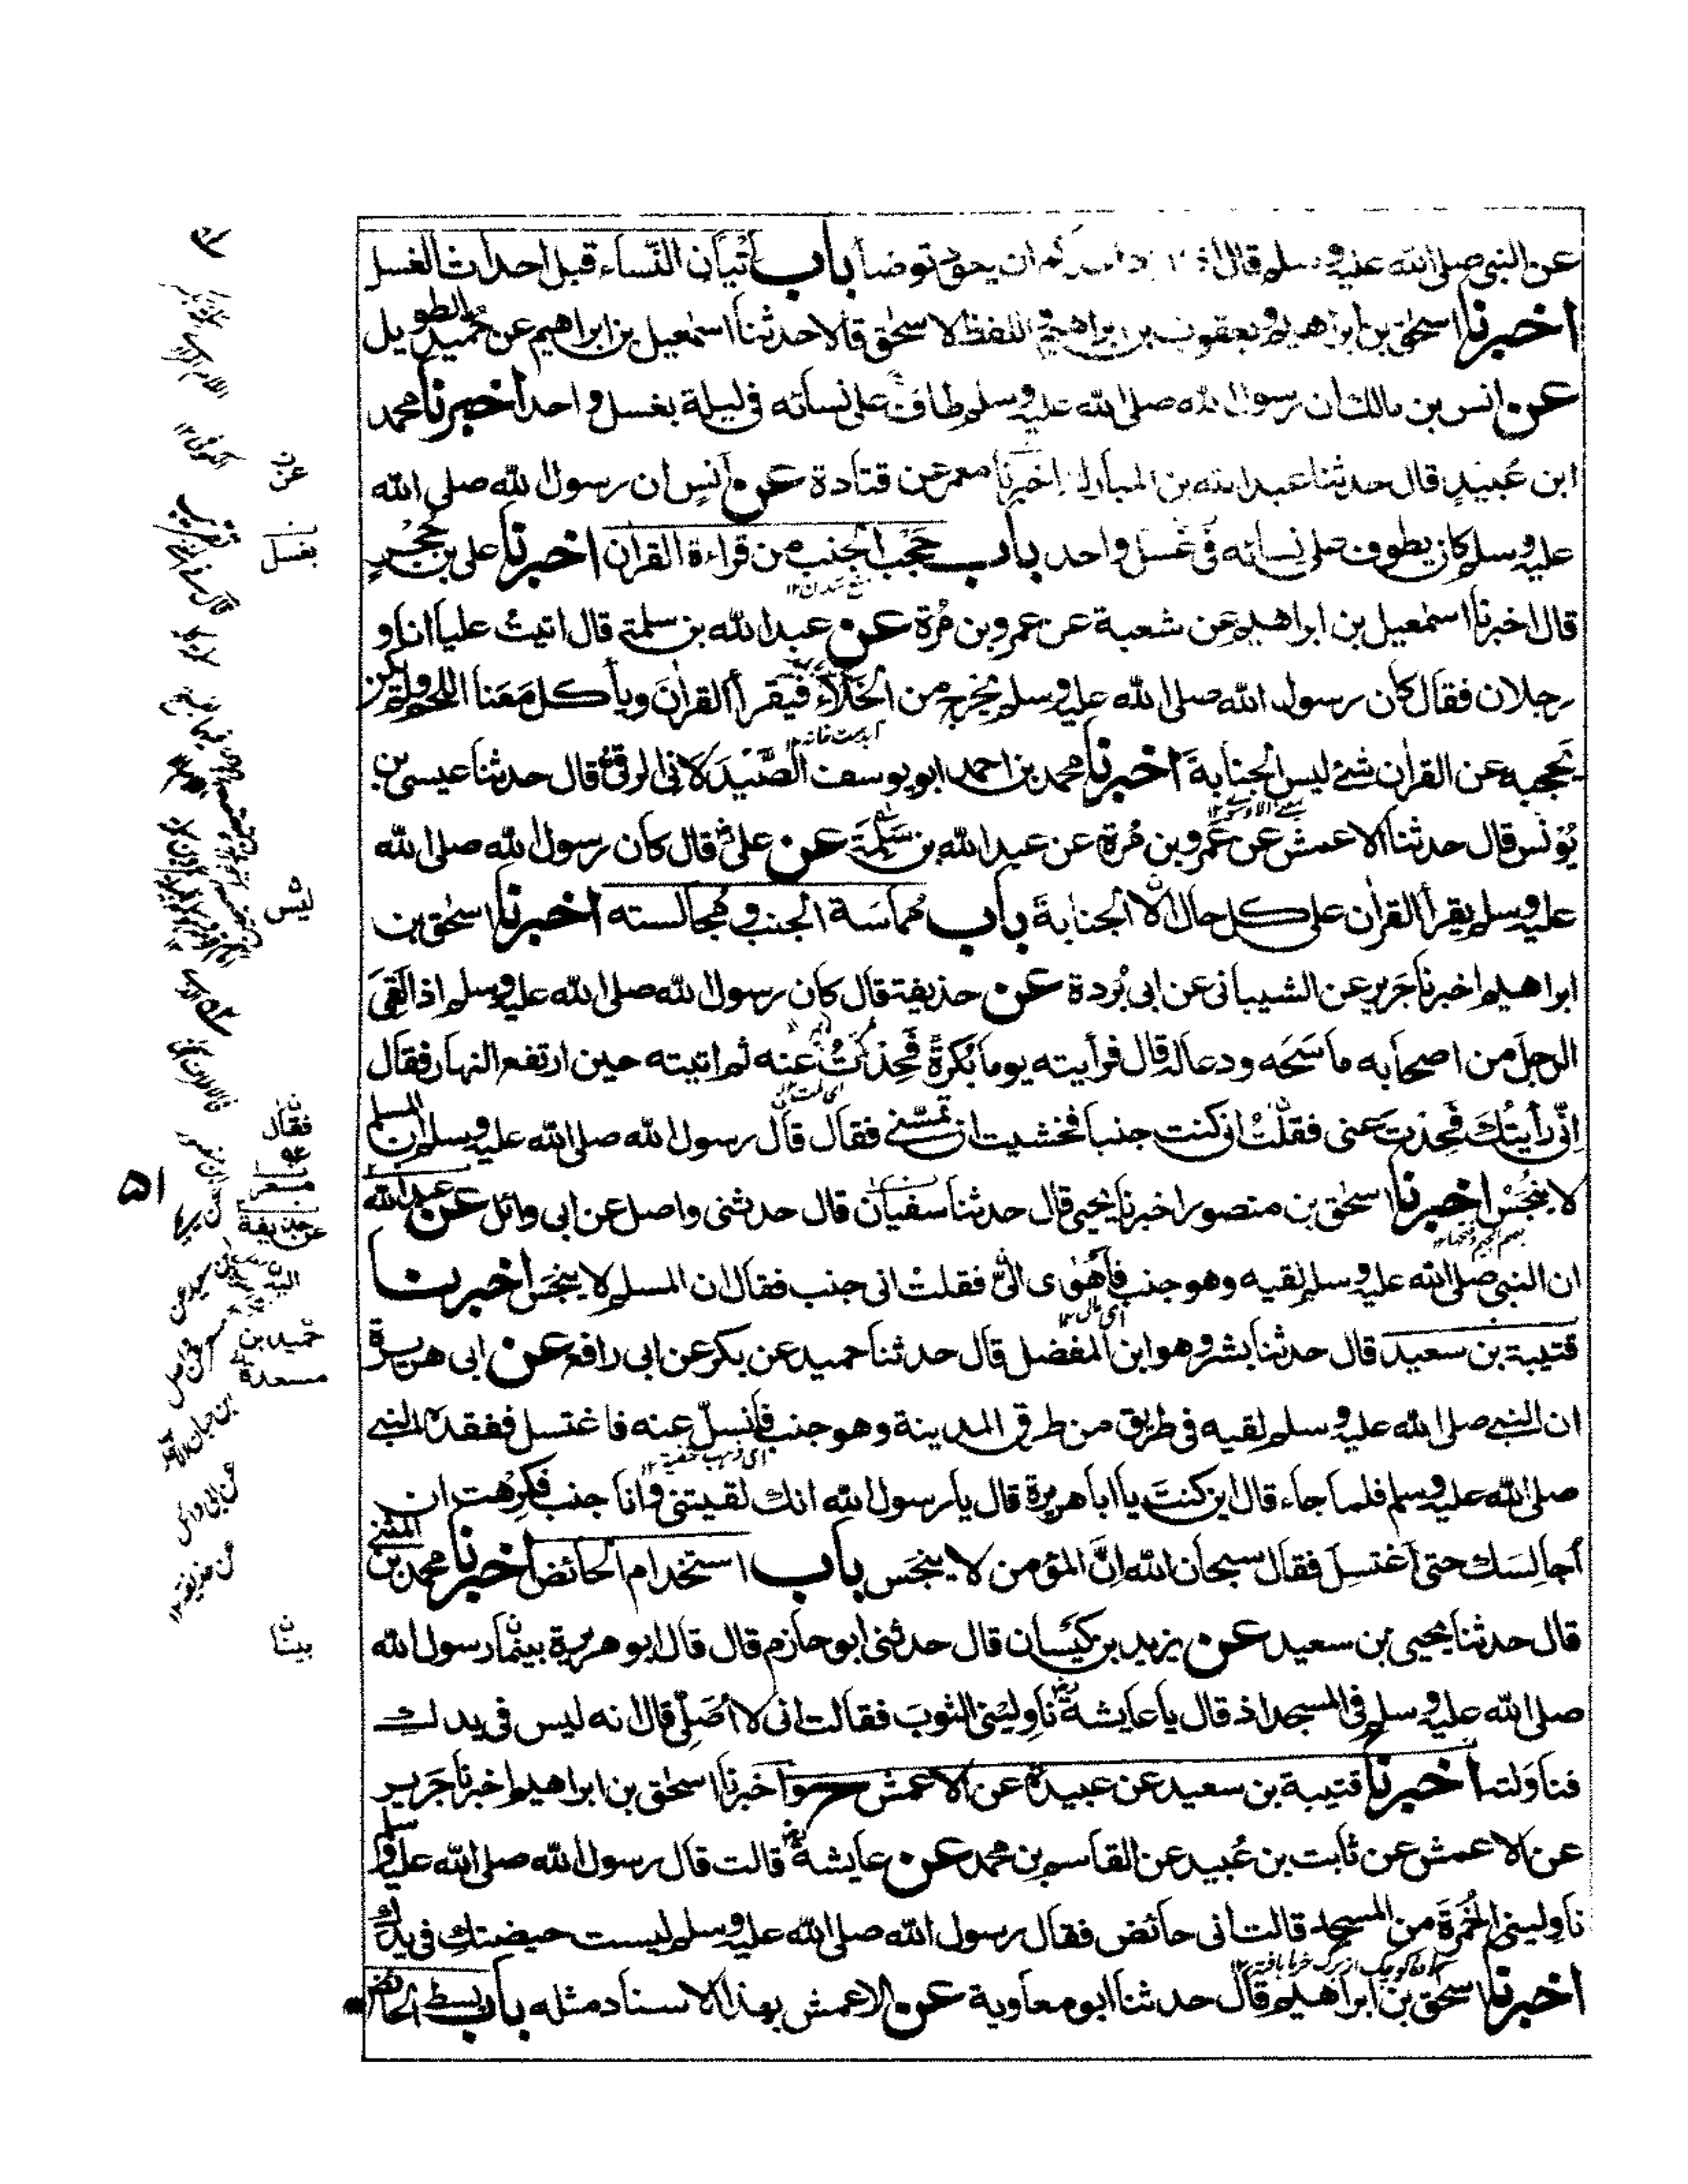 عن النبي صلى الله عليه وسلم قال اذا ان يعود توضأ باب اتيان النساء قبل احداث الغسل
اخبرنا اسحٰق بن ابراهيم ويعقوب بن ابراهيم واللفظ لاسحٰق قالا حدثنا اسمٰعيل بن ابراهيم عن حُميد الطويل
عن انس بن مالك ان رسول الله صلى الله عليه وسلم طاف على نسائه في ليلة بغسل واحد اخبرنا محمد
ابن عُبيدٍ قال حدثنا عبد الله بن المبارك اخبرنا معمر عن قتادة عن أنسٍ ان رسول الله صلى الله
عليه وسلم كان يطوف على نسائه في غسل واحد باب حَجْب الجنب من قراءة القراٰن اخبرنا على بن حُجْرٍ
قال اخبرنا اسمٰعيل بن ابراهيم عن شعبة عن عمرو بن مُرة عن عبد الله بن سلمة قال اتيتُ عليا انا و
رجلان فقال كان رسول الله صلى الله عليه وسلم يخرج من الخَلَاءِ فيقرأ القراٰنَ ويأكل مَعَنا اللحم ولم يكن
يَحجبه عن القراٰن شئ ليس الجنابةَ اخبرنا محمد بن احمد ابو يوسف الصَّيْدَلانى الرقى قال حدثنا عيسى بن
يُونُس قال حدثنا الاعمش عن عَمرو بن مُرة عن عبد الله بن سَلِمَة عن على قال كان رسول الله صلى الله
عليه وسلم يقرأ القراٰن على كل حال الا الجنابةَ باب مُماسَة الجنب ومُجالسته اخبرنا اسحٰق بن
ابراهيم اخبرنا جَرير عن الشيبانى عن ابى بُردة عن حذيفة قال كان رسول الله صلى الله عليه وسلم اذا لَقِىَ
الرجلَ من اصحابه ماسَحَه ودعا له قال فرأيته يوما بُكرةً فَحِدْتُ عنه ثم اتيته حين ارتفع النهار فقال
إنى رأيتُك فحِدتَ عنى فقلتُ انى كنت جنبا فخشيت ان تمسَّنى فقال قال رسول الله صلى الله عليه وسلم ان المسلم
لا ينجُسُ اخبرنا اسحٰق بن منصور اخبرنا يحيى قال حدثنا سفيان قال حدثنى واصل عن ابى وائل عن عبد الله
ان النبى صلى الله عليه وسلم لقيه وهو جنب فاَهْوٰى الىَّ فقلتُ انى جنب فقال ان المسلم لا ينجَس اخبرنا
قتيبة بن سعيد قال حدثنا بشر وهو ابن المفضل قال حدثنا حميد عن بكر عن ابى رافع عن ابى هريرة
ان النبى صلى الله عليه وسلم لقيه فى طريق من طرق المدينة وهو جنب فانسلّ عنه فاغتسل ففقده النبى
صلى الله عليه وسلم فلما جاء قال اين كنتَ يا ابا هريرة قال يا رسول الله انك لقيتنى وانا جنب فكرهت ان
أُجالسك حتى أغتسل فقال سبحان الله انَّ المؤمن لا ينجَس باب استخدام الحائض اخبرنا محمد بن المثنى
قال حدثنا يحيى بن سعيد عن يزيد بن كيْسان قال حدثنى ابو حازم قال قال ابو هريرة بينما رسول الله
صلى الله عليه وسلم فى المسجد اذ قال يا عايشة ناوِلينى الثوبَ فقالت انى لا أُصَلى قال انه ليس فى يدك
فناوَلته اخبرنا قتيبة بن سعيد عن عبيدة عن الاعمش ح واخبرنا اسحٰق بن ابراهيم اخبرنا جَرير
عن الاعمش عن ثابت بن عُبيد عن القاسم بن محمد عن عايشة قالت قال رسول الله صلى الله عليه وسلم
ناوِلينى الخُمرَة من المسجد قالت انى حائض فقال رسول الله صلى الله عليه وسلم ليست حيضتكِ فى يدك
اخبرنا اسحٰق بن ابراهيم قال حدثنا ابو معاوية عن الاعمش بهذا الاسناد مثله باب بسط الحائض
عن
بغسل
ليس
فقال
مسعر
عن حذيفة
حُميد بن
مسعدة
بينا
٥١